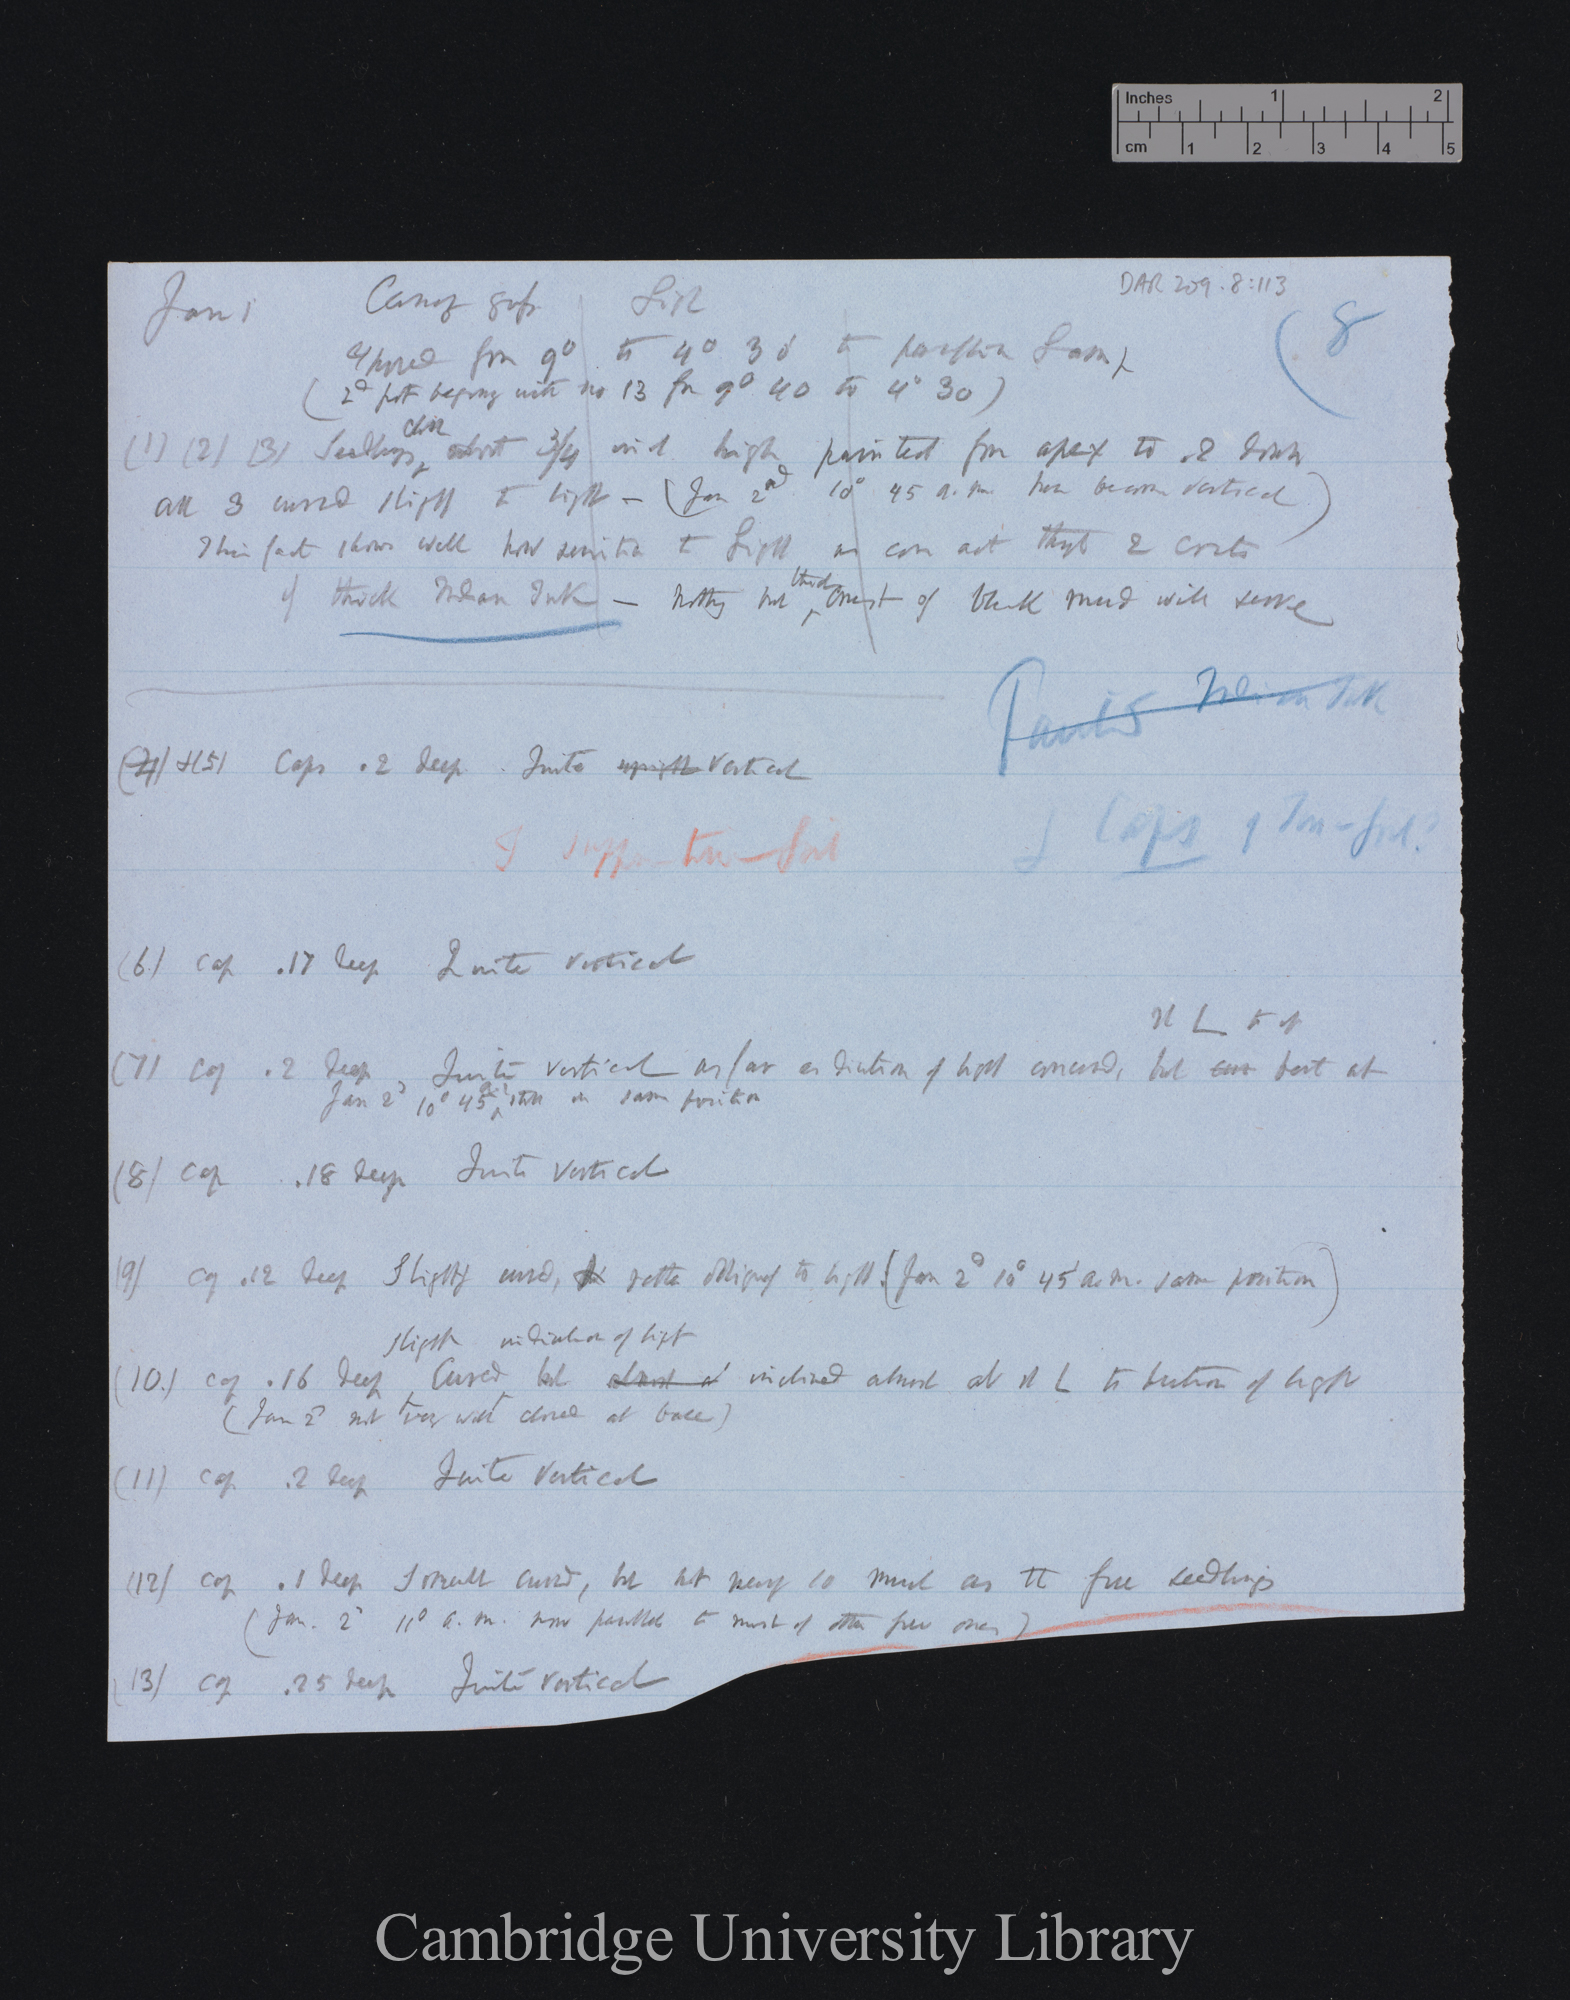 Inches 1 2
cm 1 2 3 4 5
DAR 209.8:113
Jan 1 Canary grass Light
(8
exposed from 9° to 4° 30' to paraffin Lamp
(2d pot beginning with no 13 from 9° 40 to 4° 30)
(1) (2) (3) Seedlings about 3/4 inch high painted from apex to .2 down
all 3 curved slightly to light — (Jan 2nd 10° 45 a.m. have become vertical)
This fact shows well how sensitive to Light as can act through 2 coats
of thick Indian Ink — nothing but thick crust of black mud will serve
Painted Indian Ink
(4) & (5) Caps .2 deep Quite upright vertical
I suppose tin-foil
I Caps of Tin-foil?
(6) Cap .17 deep Quite vertical
rt L to it
(7) Cap .2 deep Quite vertical as far as direction of light concerned, but bent at
Jan 2d 10° 45' still in same position
(8) Cap .18 deep Quite vertical
(9) Cap .12 deep Slightly curved, rather obliquely to light. (Jan 2d 10° 45' a.m. same position)
slight indication of light
(10.) Cap .16 deep Curved but almost at inclined almost at rt L to direction of light
(Jan 2d not very well closed at base)
(11) Cap .2 deep Quite vertical
(12) Cap .1 deep Somewhat curved, but not nearly so much as the free seedlings
(Jan. 2d 11° a.m. now parallel to most of other free ones)
(13) Cap .25 deep Quite vertical
Cambridge University Library